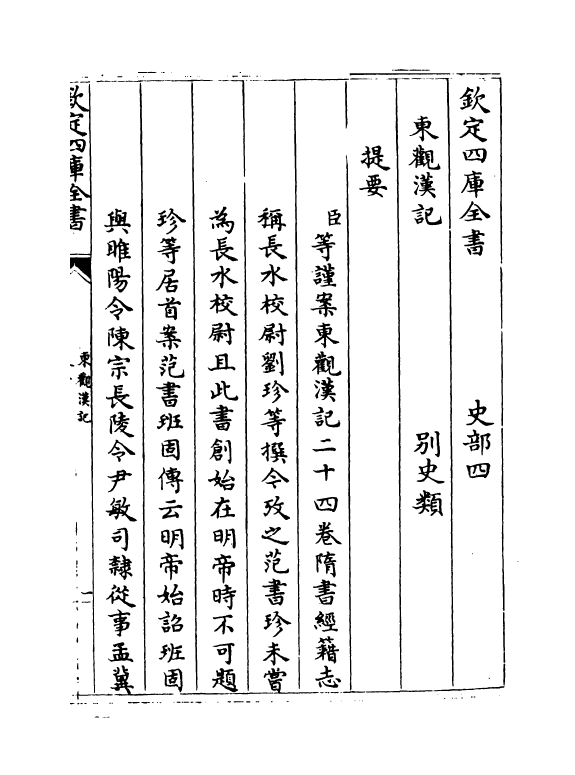 欽定四庫全書 史部四
東觀漢記 別史類
提要
臣等謹案東觀漢記二十四卷隋書經籍志
稱長水校尉劉珍等撰今攷之范書珍未嘗
為長水校尉且此書創始在明帝時不可題
珍等居首案范書班固傳云明帝始詔班固
與睢陽令陳宗長陵令尹敏司隸從事孟冀
欽定四庫全書
東觀漢記
一